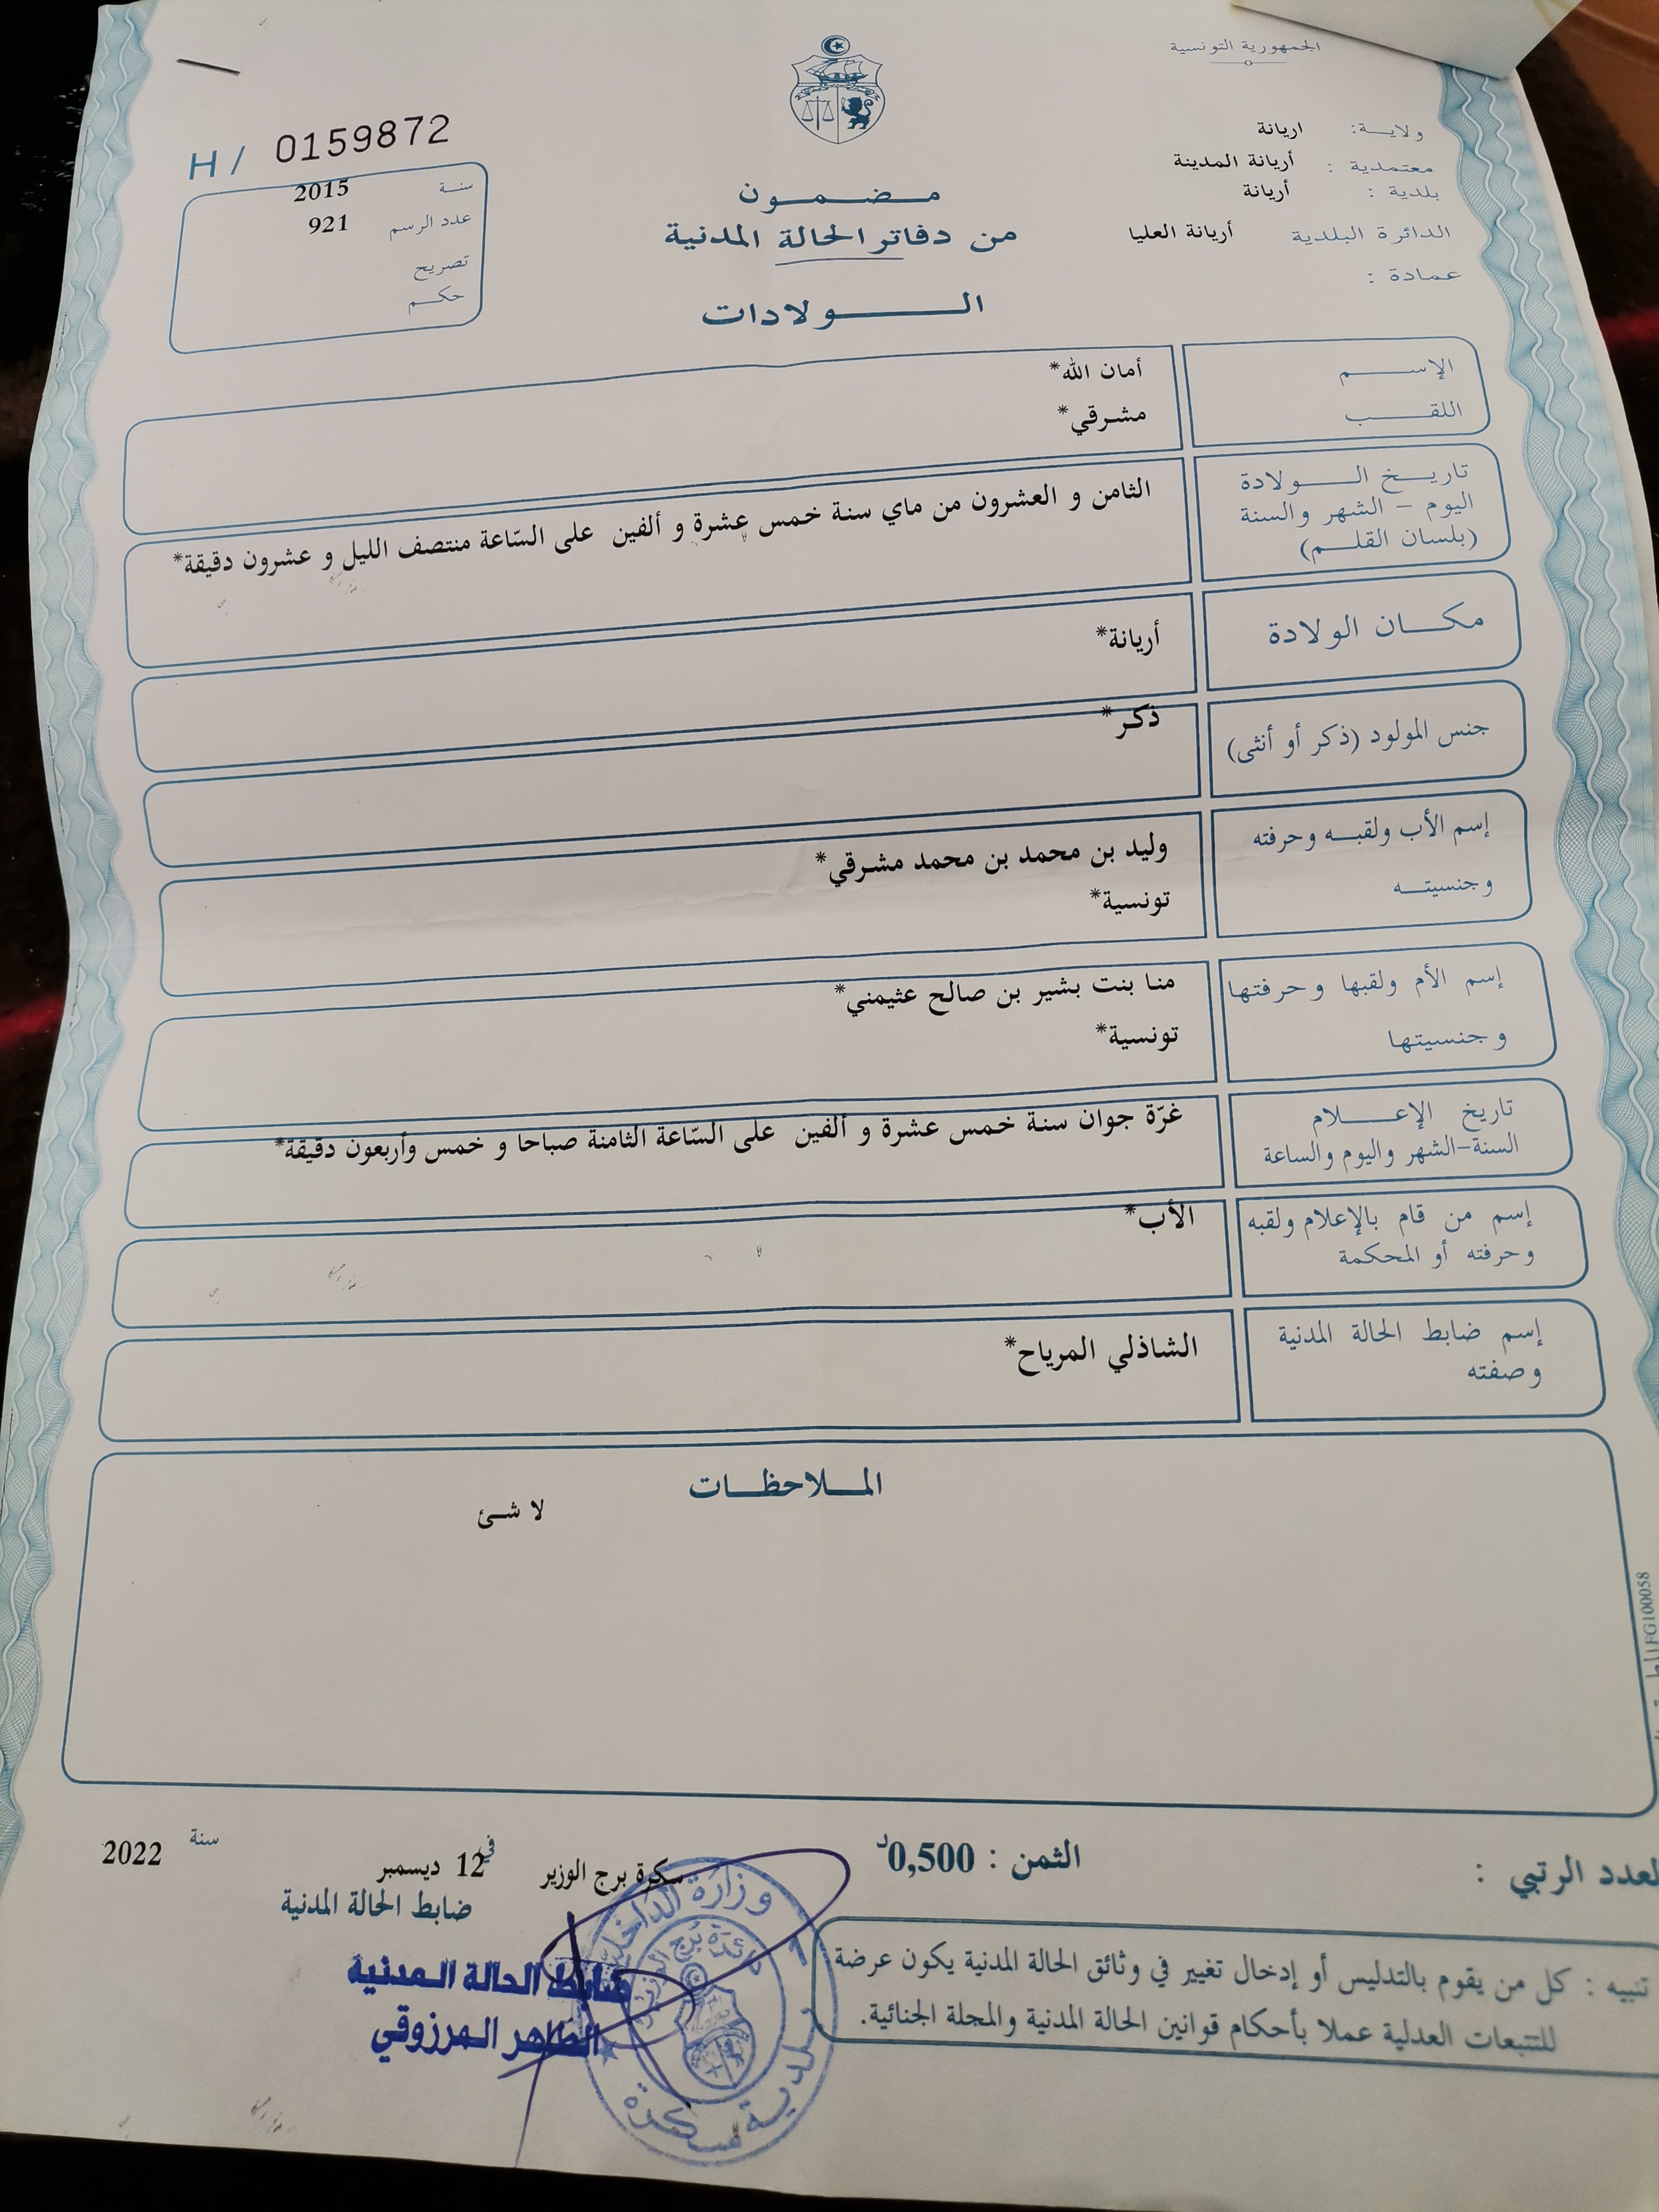 الجمهورية التونسية
ولاية: اريانة
معتمدية : أريانة المدينة
بلدية : أريانة
الدائرة البلدية أريانة العليا
عمادة :
مضمون
من دفاتر الحالة المدنية
الولادات
H / 0159872
سنة 2015
عدد الرسم 921
تصريح
حكم
الإسم أمان الله*
اللقب مشرقي*
تاريخ الولادة
اليوم - الشهر والسنة
(بلسان القلم)
الثامن و العشرون من ماي سنة خمس عشرة و ألفين على السّاعة منتصف الليل و عشرون دقيقة*
مكان الولادة أريانة*
جنس المولود (ذكر أو أنثى) ذكر*
إسم الأب ولقبه وحرفته وليد بن محمد بن محمد مشرقي*
وجنسيته تونسية*
إسم الأم ولقبها وحرفتها منا بنت بشير بن صالح عثيمني*
وجنسيتها تونسية*
تاريخ الإعلام
السنة-الشهر واليوم والساعة
غرّة جوان سنة خمس عشرة و ألفين على السّاعة الثامنة صباحا و خمس وأربعون دقيقة*
إسم من قام بالإعلام ولقبه الأب*
وحرفته أو المحكمة
إسم ضابط الحالة المدنية الشاذلي المرياح*
وصفته
الملاحظات
لا شئ
لعدد الرتبي :
الثمن : 0,500د
سكرة برج الوزير في 12 ديسمبر سنة 2022
ضابط الحالة المدنية
ضابط الحالة المدنية
الطاهر المرزوقي
وزارة الداخلية
بلدية سكرة
دائرة برج الوزير
تنبيه : كل من يقوم بالتدليس أو إدخال تغيير في وثائق الحالة المدنية يكون عرضة
للتتبعات العدلية عملا بأحكام قوانين الحالة المدنية والمجلة الجنائية.
FG100058